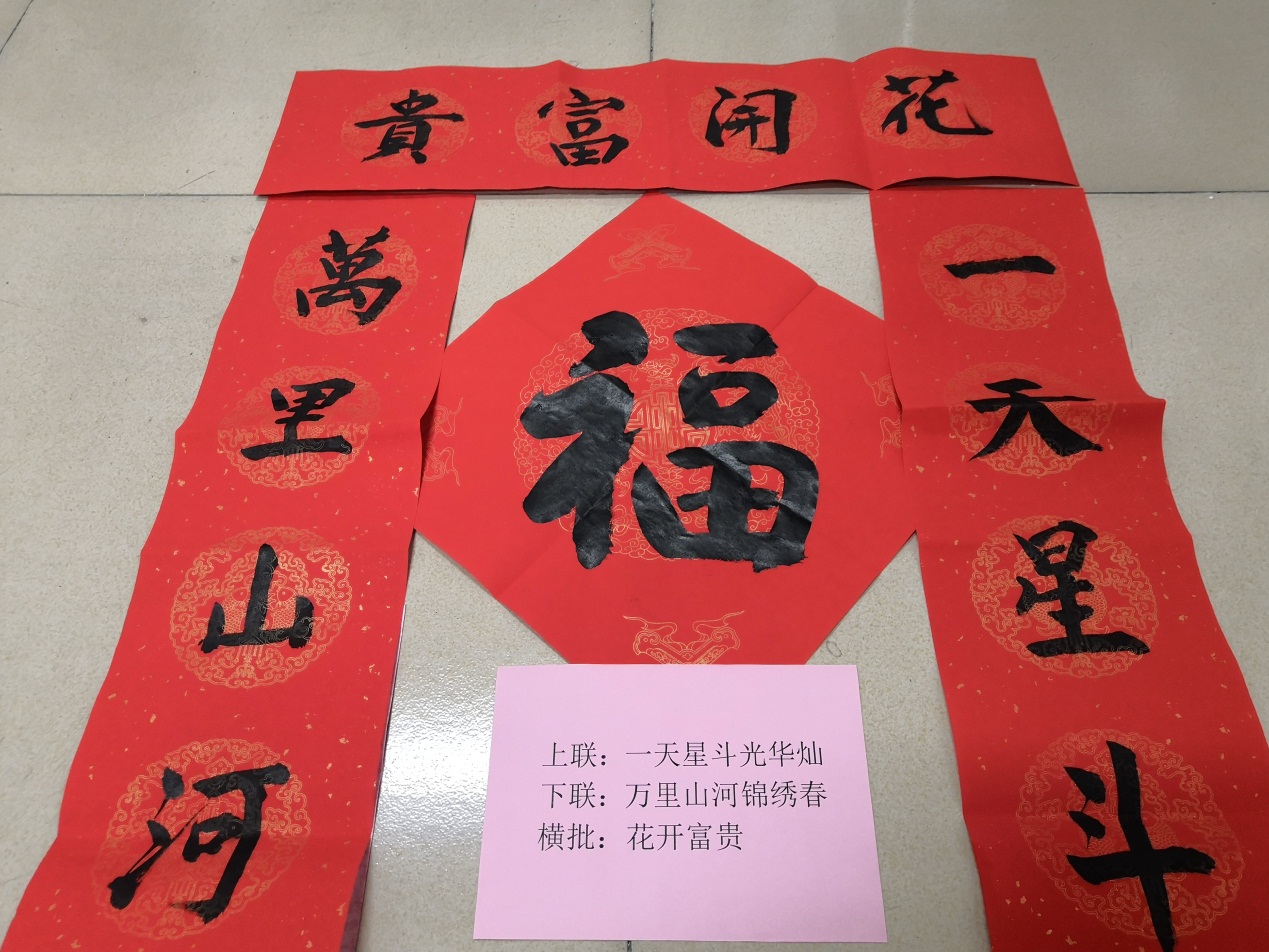 花開富貴
一天星斗
萬里山河
福
上联：一天星斗光华灿
下联：万里山河锦绣春
横批：花开富贵